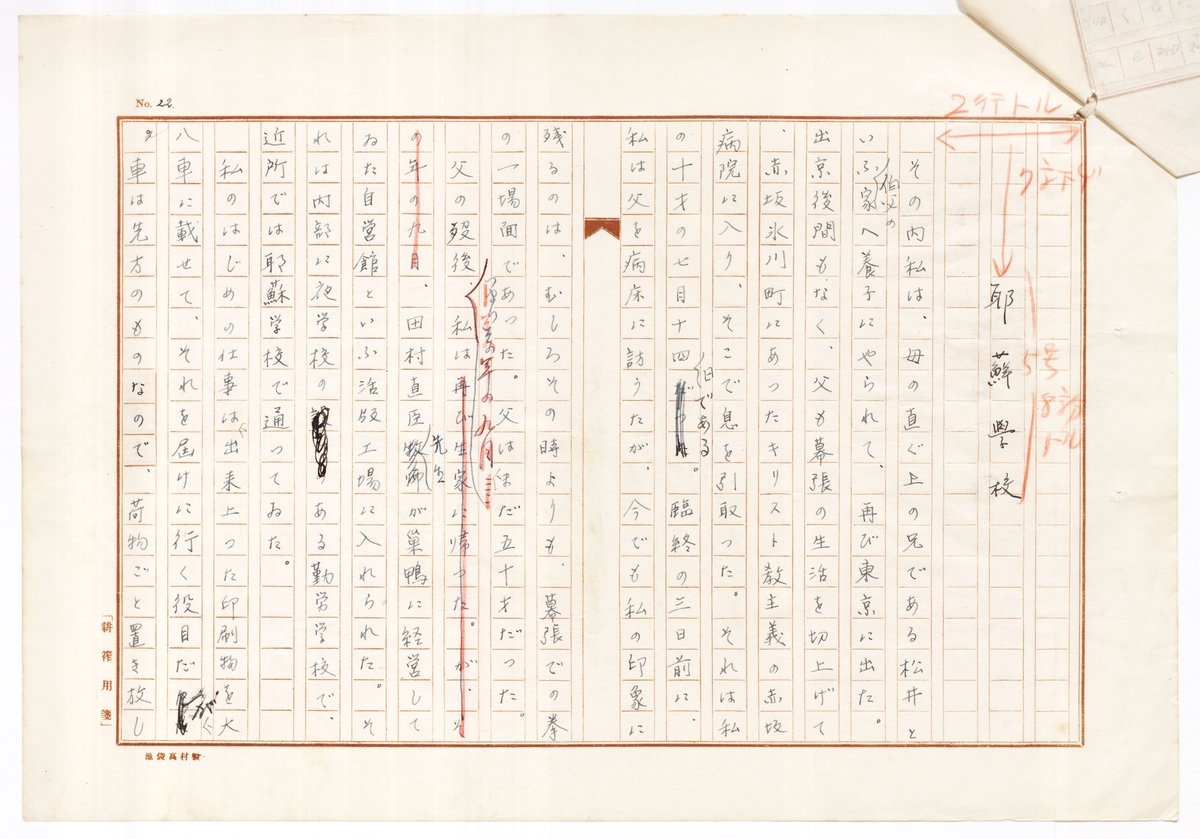 No. 22.
2行トル
7字下ゲ
5号
8字分
トル
耶蘇學校
その内私は、母の直ぐ上の兄である松井と
いふ家へ養子にやられて、再び東京に出た。
伯父の
出京後間もなく、父も幕張の生活を切上げて
、赤坂氷川町にあつたキリスト教主義の赤坂
病院に入り、そこで息を引取つた。それは私
の十才の七月十四
である。臨終の三日前に、
私は父を病床に訪うたが、今でも私の印象に
残るのは、むしろその時よりも、幕張での拳
の一場面であつた。父はまだ五十才だつた。
父の歿後、私は再び生家に帰つた。が、そ
その年の九月
の年の九月、田村直臣牧師が巣鴨に経営して
先生
ゐた自営館といふ活版工場に入れられた。そ
れは内部に夜学校のある勤労学校で、
近所では耶蘇学校で通つてゐた。
私のはじめの仕事は、出来上つた印刷物を大
八車に載せて、それを届けに行く役目だ
が、
車は先方のものなので、荷物ごと置き放し
「耕搾用箋」
池袋高村製